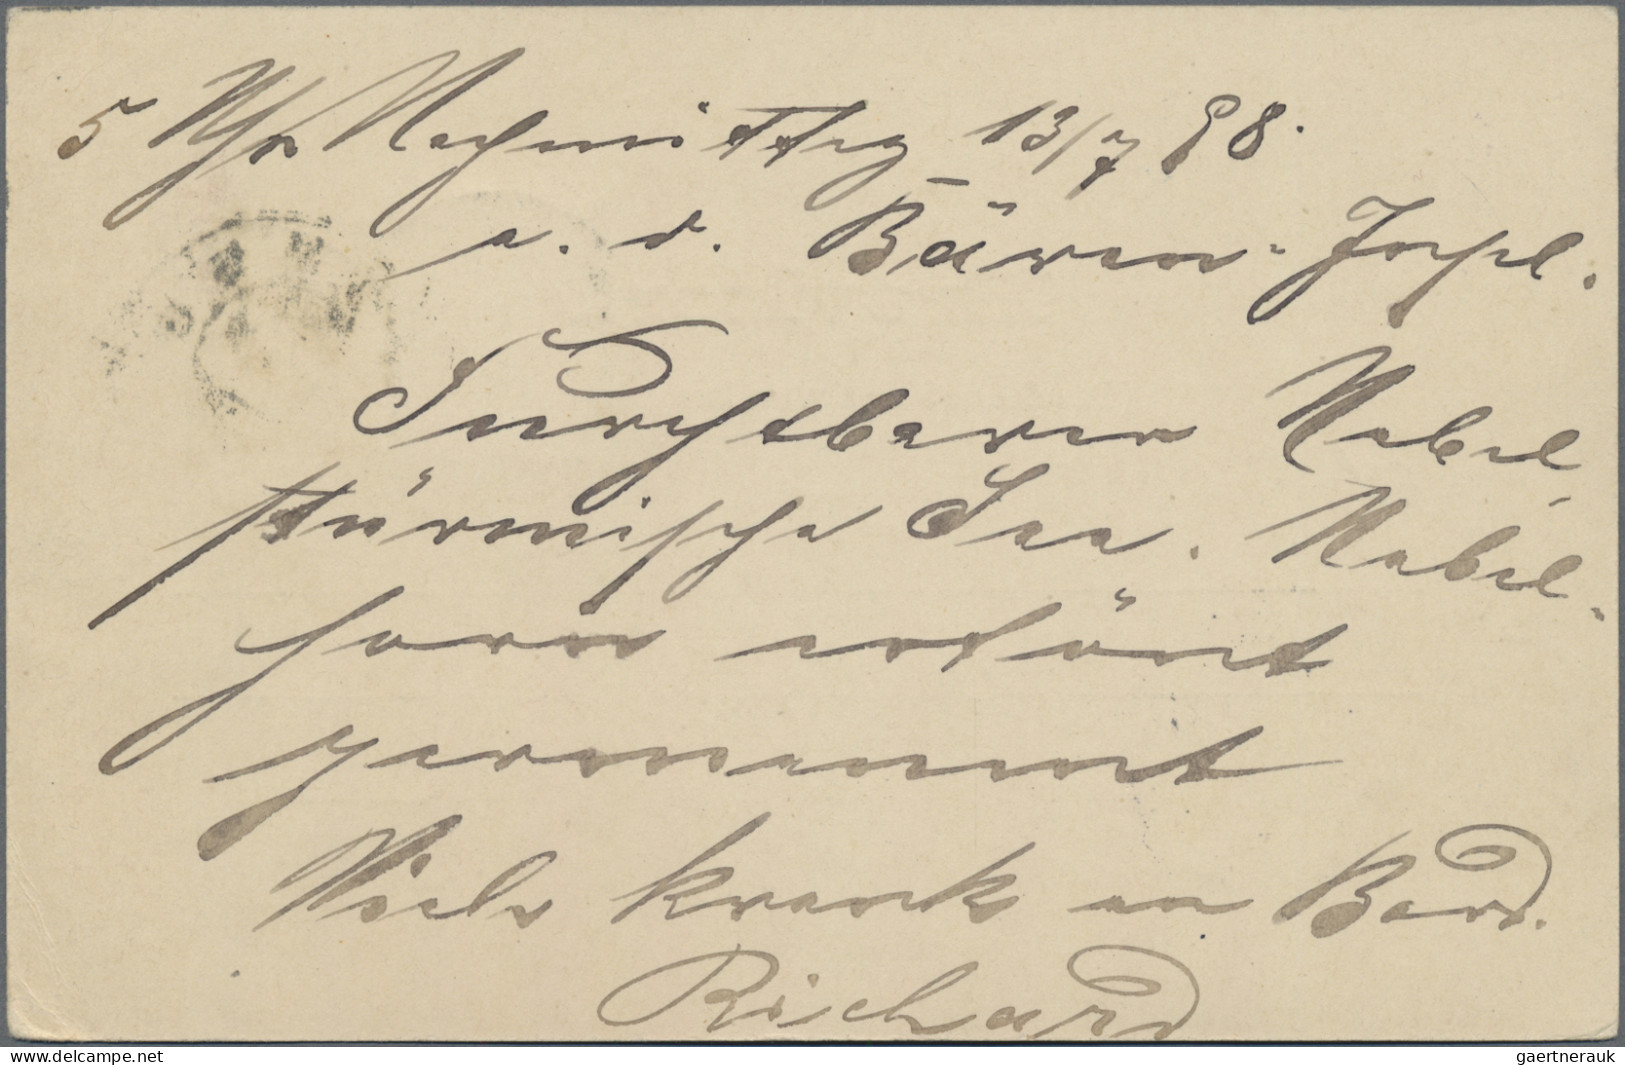 5 Uhr Nachmittag 13/7 98.
a. d. Bären-Insel.
Furchtbarer Nebel,
stürmische See. Nebel-
horn ertönt
permanent
Viele krank an Bord.
Richard
gaertnerauk @ delcampe.net